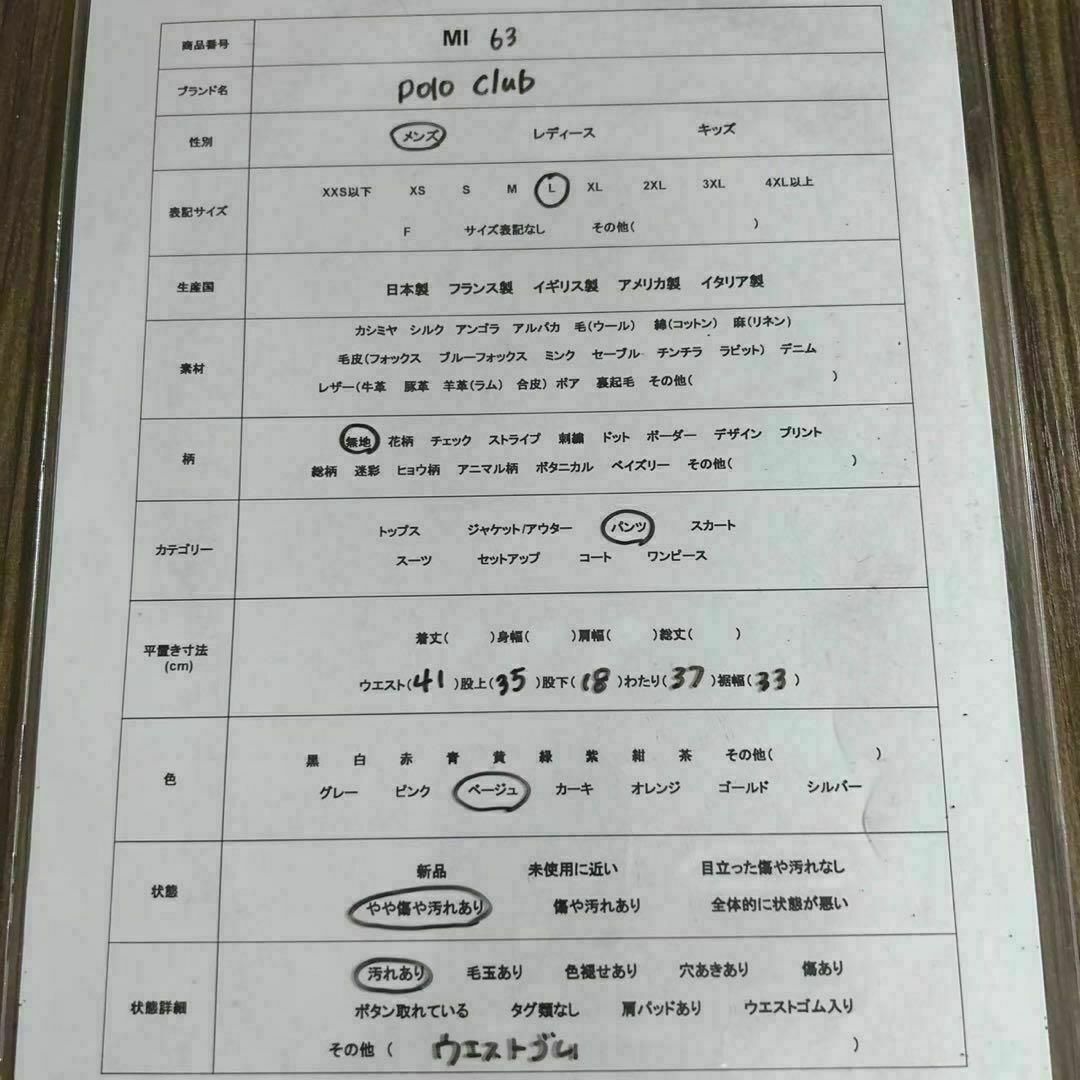 商品番号 MI 63
ブランド名 Polo Club
性別 メンズ レディース キッズ
表記サイズ
XXS以下 XS S M L XL 2XL 3XL 4XL以上
F サイズ表記なし その他( )
生産国 日本製 フランス製 イギリス製 アメリカ製 イタリア製
素材
カシミヤ シルク アンゴラ アルパカ 毛(ウール) 綿(コットン) 麻(リネン)
毛皮(フォックス ブルーフォックス ミンク セーブル チンチラ ラビット) デニム
レザー(牛革 豚革 羊革(ラム) 合皮) ボア 裏起毛 その他( )
柄
無地 花柄 チェック ストライプ 刺繍 ドット ボーダー デザイン プリント
総柄 迷彩 ヒョウ柄 アニマル柄 ボタニカル ペイズリー その他( )
カテゴリー
トップス ジャケット/アウター パンツ スカート
スーツ セットアップ コート ワンピース
平置き寸法
(cm)
着丈( )身幅( )肩幅( )総丈( )
ウエスト(41)股上(35)股下(18)わたり(37)裾幅(33)
色
黒 白 赤 青 黄 緑 紫 紺 茶 その他( )
グレー ピンク ベージュ カーキ オレンジ ゴールド シルバー
状態
新品 未使用に近い 目立った傷や汚れなし
やや傷や汚れあり 傷や汚れあり 全体的に状態が悪い
状態詳細
汚れあり 毛玉あり 色褪せあり 穴あきあり 傷あり
ボタン取れている タグ類なし 肩パッドあり ウエストゴム入り
その他 ( ウエストゴム )